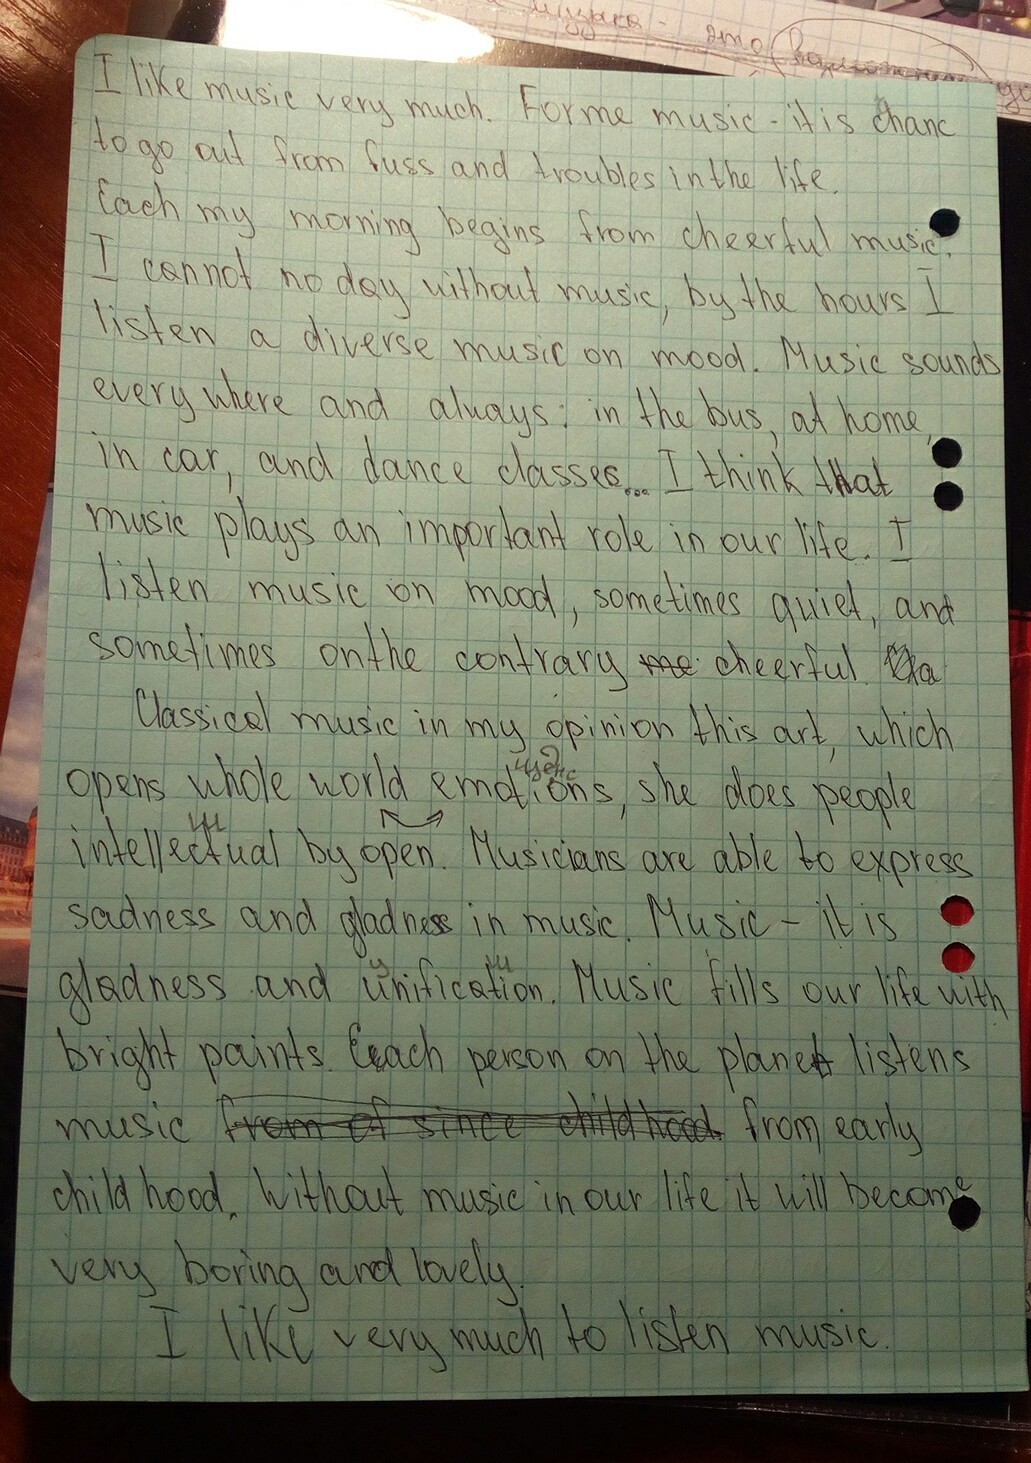 музыка - это
I like music very much. For me music - it is chanc
to go out from fuss and troubles in the life.
Each my morning begins from cheerful music.
I cannot no day without music, by the hours I
listen a diverse music on mood. Music sounds
everywhere and always: in the bus, at home,
in car, and dance classes... I think that
music plays an important role in our life. I
listen music on mood, sometimes quiet, and
sometimes on the contrary me cheerful.
Classical music in my opinion this art, which
opens whole world emotions, she does people
intellectual by open. Musicians are able to express
sadness and gladness in music. Music - it is
gladness and unification. Music fills our life with
bright paints. Each person on the planet listens
music from of since childhood from early
childhood. Without music in our life it will become
very boring and lovely.
I like very much to listen music.